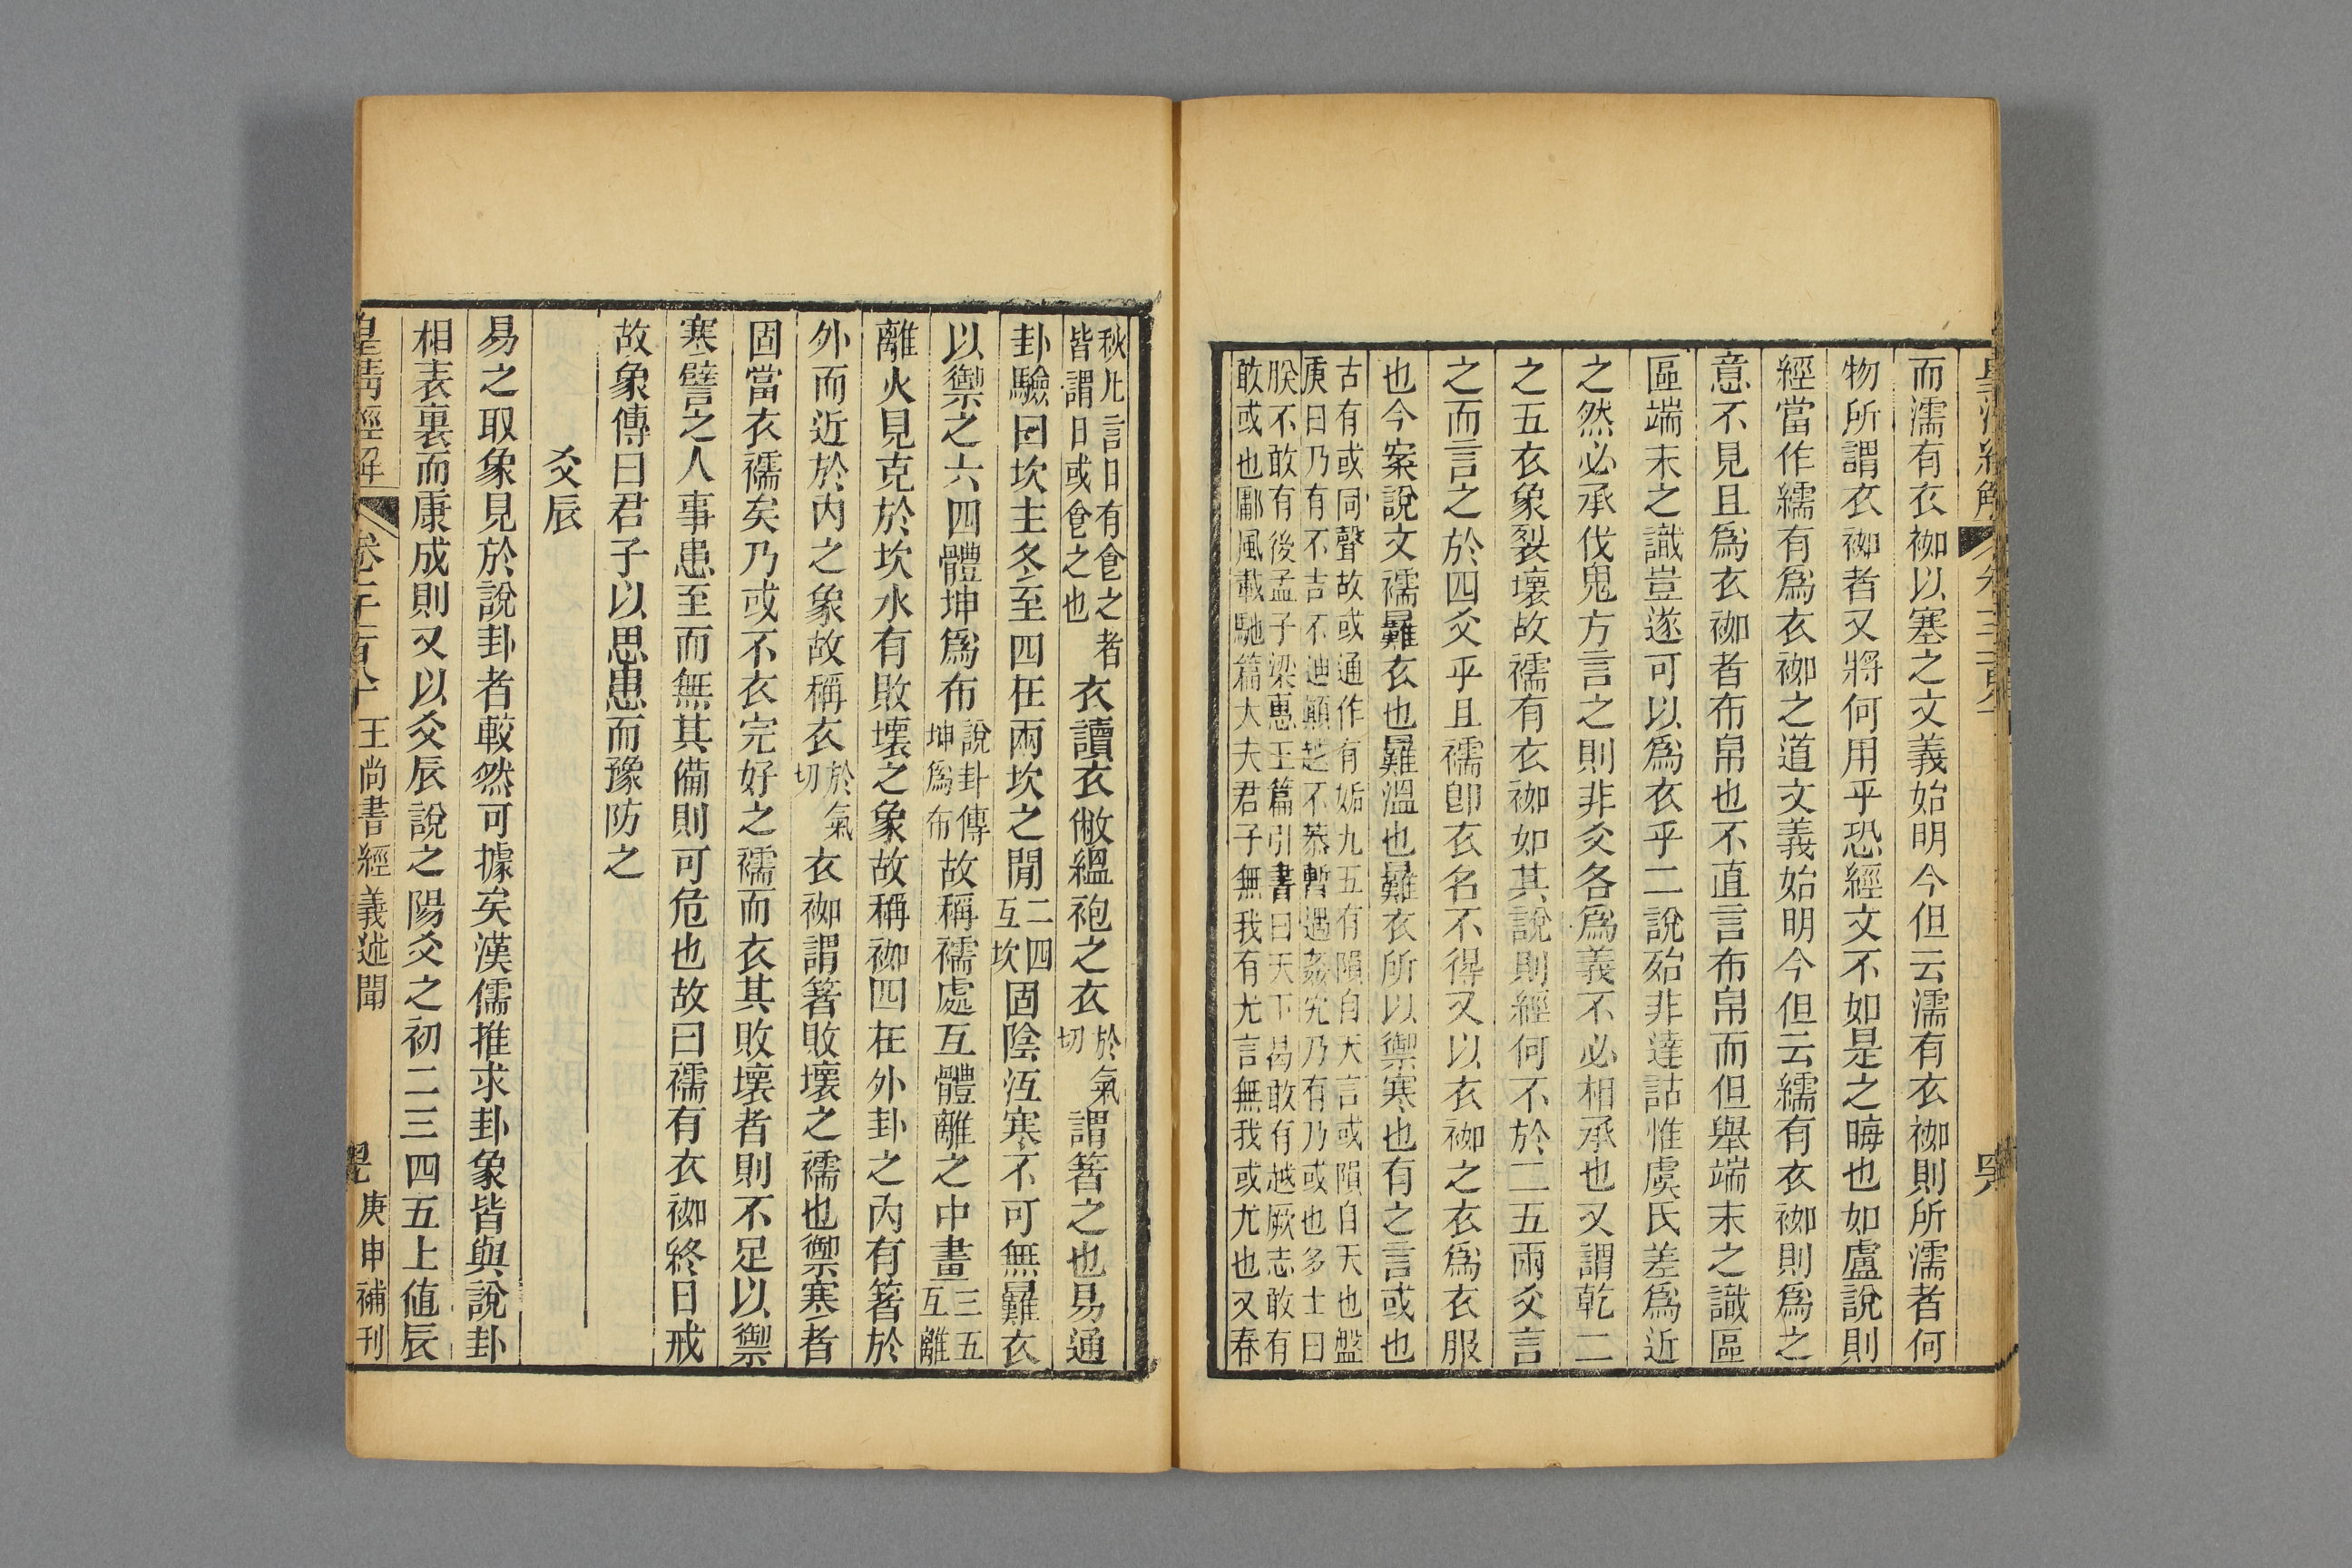 而濡有衣袽以塞之文義始明今但云濡有衣袽則所濡者何
物所謂衣袽者又將何用乎恐經文不如是之晦也如盧說則
經當作繻有爲衣袽之道文義始明今但云繻有衣袽則爲之
意不見且爲衣袽者布帛也不直言布帛而但舉端末之識區
區端末之識豈遂可以爲衣乎二說殆非達詁惟虞氏差爲近
之然必承伐鬼方言之則非爻各爲義不必相承也又謂乾二
之五衣象裂壞故襦有衣袽如其說則經何不於二五兩爻言
之而言之於四爻乎且襦卽衣名不得又以衣袽之衣爲衣服
也今案說文襦㬮衣也㬮溫也㬮衣所以禦寒也有之言或也
古有或同聲故或通作有姤九五有隕自天言或隕自天也盤
庚曰乃有不吉不迪顚越不恭暫遇姦宄乃有乃或也多士曰
朕不敢有後孟子梁惠王篇引書曰天下曷敢有越厥志敢有
敢或也鄘風載馳篇大夫君子無我有尤言無我或尤也又春
秋凡言日有食之者
皆謂日或食之也
衣讀衣敝縕袍之衣
於氣
切
謂箸之也易通
卦驗曰坎主冬至四在兩坎之閒
二四
互坎
固陰沍寒不可無㬮衣
以禦之六四體坤爲布
說卦傳
坤爲布
故稱襦處互體離之中畫
三五
互離
離火見克於坎水有敗壞之象故稱袽四在外卦之內有箸於
外而近於內之象故稱衣
於氣
切
衣袽謂箸敗壞之襦也禦寒者
固當衣襦矣乃或不衣完好之襦而衣其敗壞者則不足以禦
寒譬之人事患至而無其備則可危也故曰襦有衣袽終日戒
故象傳曰君子以思患而豫防之
爻辰
易之取象見於說卦者較然可據矣漢儒推求卦象皆與說卦
相表裏而康成則又以爻辰說之陽爻之初二三四五上值辰
皇清經解
王尚書經義述聞
庚申補刊